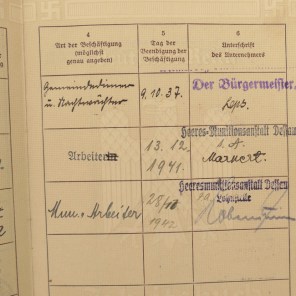 4
Art der Beschäftigung
(möglichst
genau angeben)
5
Tag der
Beendigung der
Beschäftigung
6
Unterschrift
des Unternehmers
Gemeindediener
u. Nachtwächter
9.10.37.
Der Bürgermeister.
Arbeiterin
13.12.
1941.
Heeres-Munitionsanstalt Dessau
I. A.
Markert.
Mun.-Arbeiter
1942
Heeresmunitionsanstalt Dessau
Lohnstelle